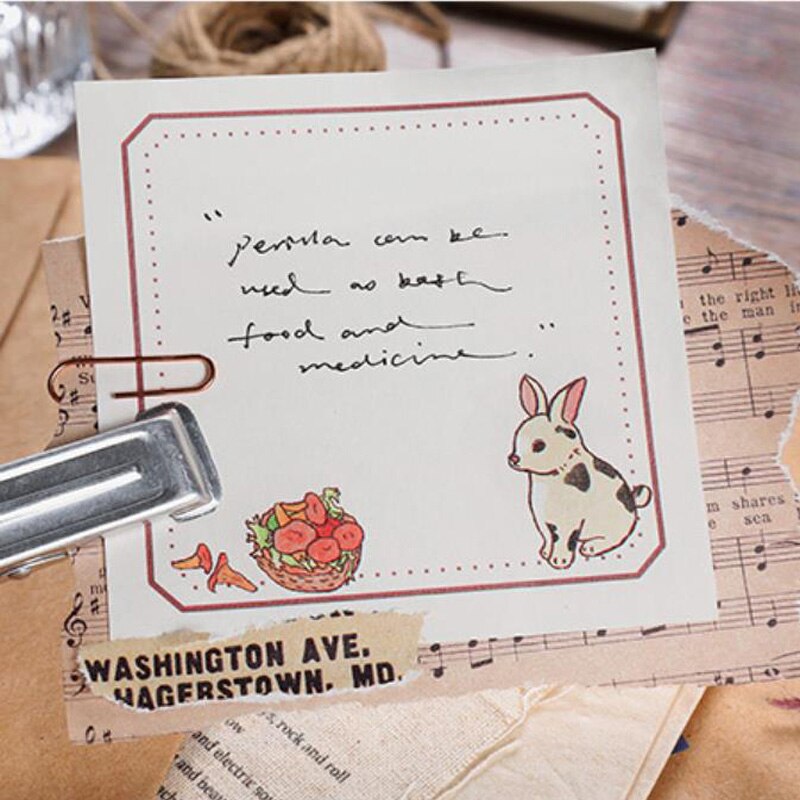 " Perilla can be
used as both
food and
medicine . "
the right li
e the man in
m shares
e sca
WASHINGTON AVE.
HAGERSTOWN, MD.
s, rock and roll
ow
and electric so
and beau